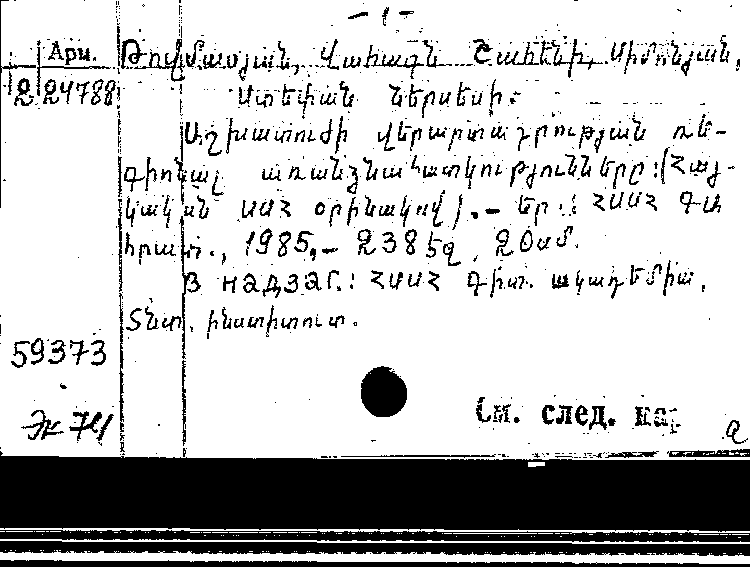 - 1 -
Арм. Թովմասյան, Վահագն Շահենի, Սիմոնյան,
2 24788 Ստեփան Ներսեսի.
Աշխատուժի վերարտադրության ռե-
գիոնալ առանձնահատկությունները: (Հայ-
կական ՍՍՀ օրինակով). - Եր.: ՀՍՍՀ ԳԱ
հրատ., 1985. - 238 էջ, 20 սմ.
В надзаг.: ՀՍՍՀ գիտ. ակադեմիա,
Տնտ. ինստիտուտ.
59373
Эк 741
См. след. кар
а